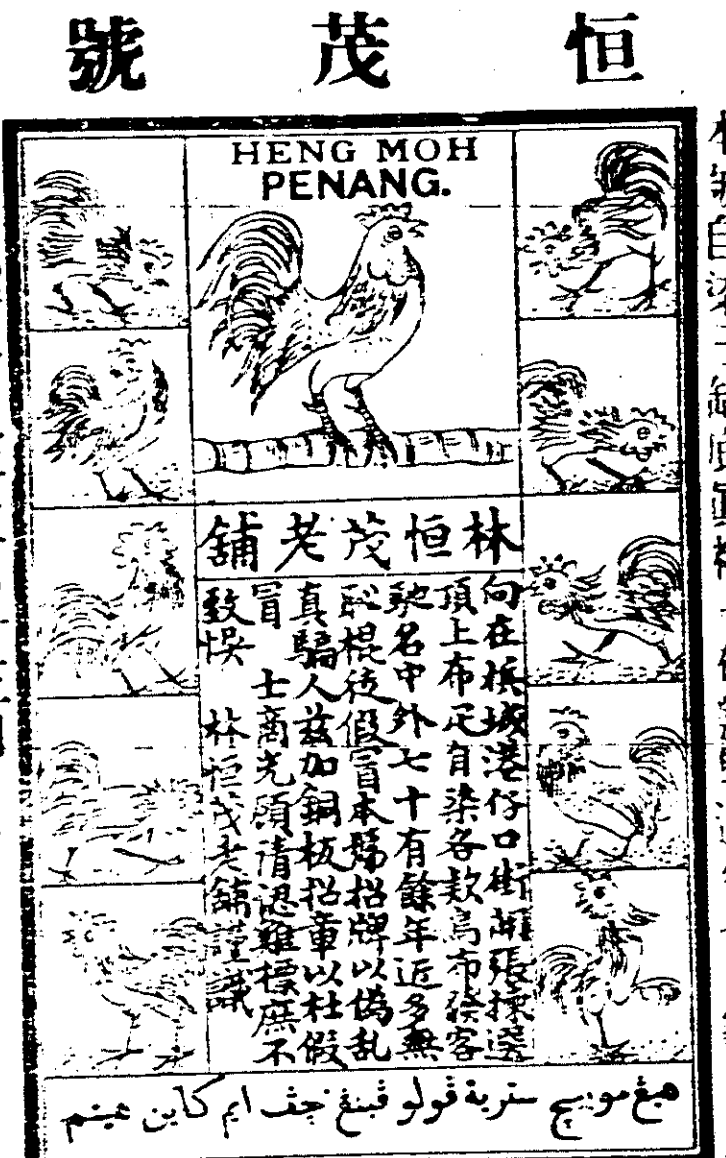 號茂恒
HENG MOH
PENANG.
舖老茂恒林
向在檳城港仔口街開張揀選
頂上布疋自染各款烏布發客
馳名中外七十有餘年近多無
恥棍徒假冒本號招牌以偽乱
真騙人茲加銅板招章以杜假
冒 士商光顧請認雞標庶不
致悮 林恒茂老舖謹識
هيڠ موه سترية ڤولو ڤينڠ چڤ ايم كاين هيتم